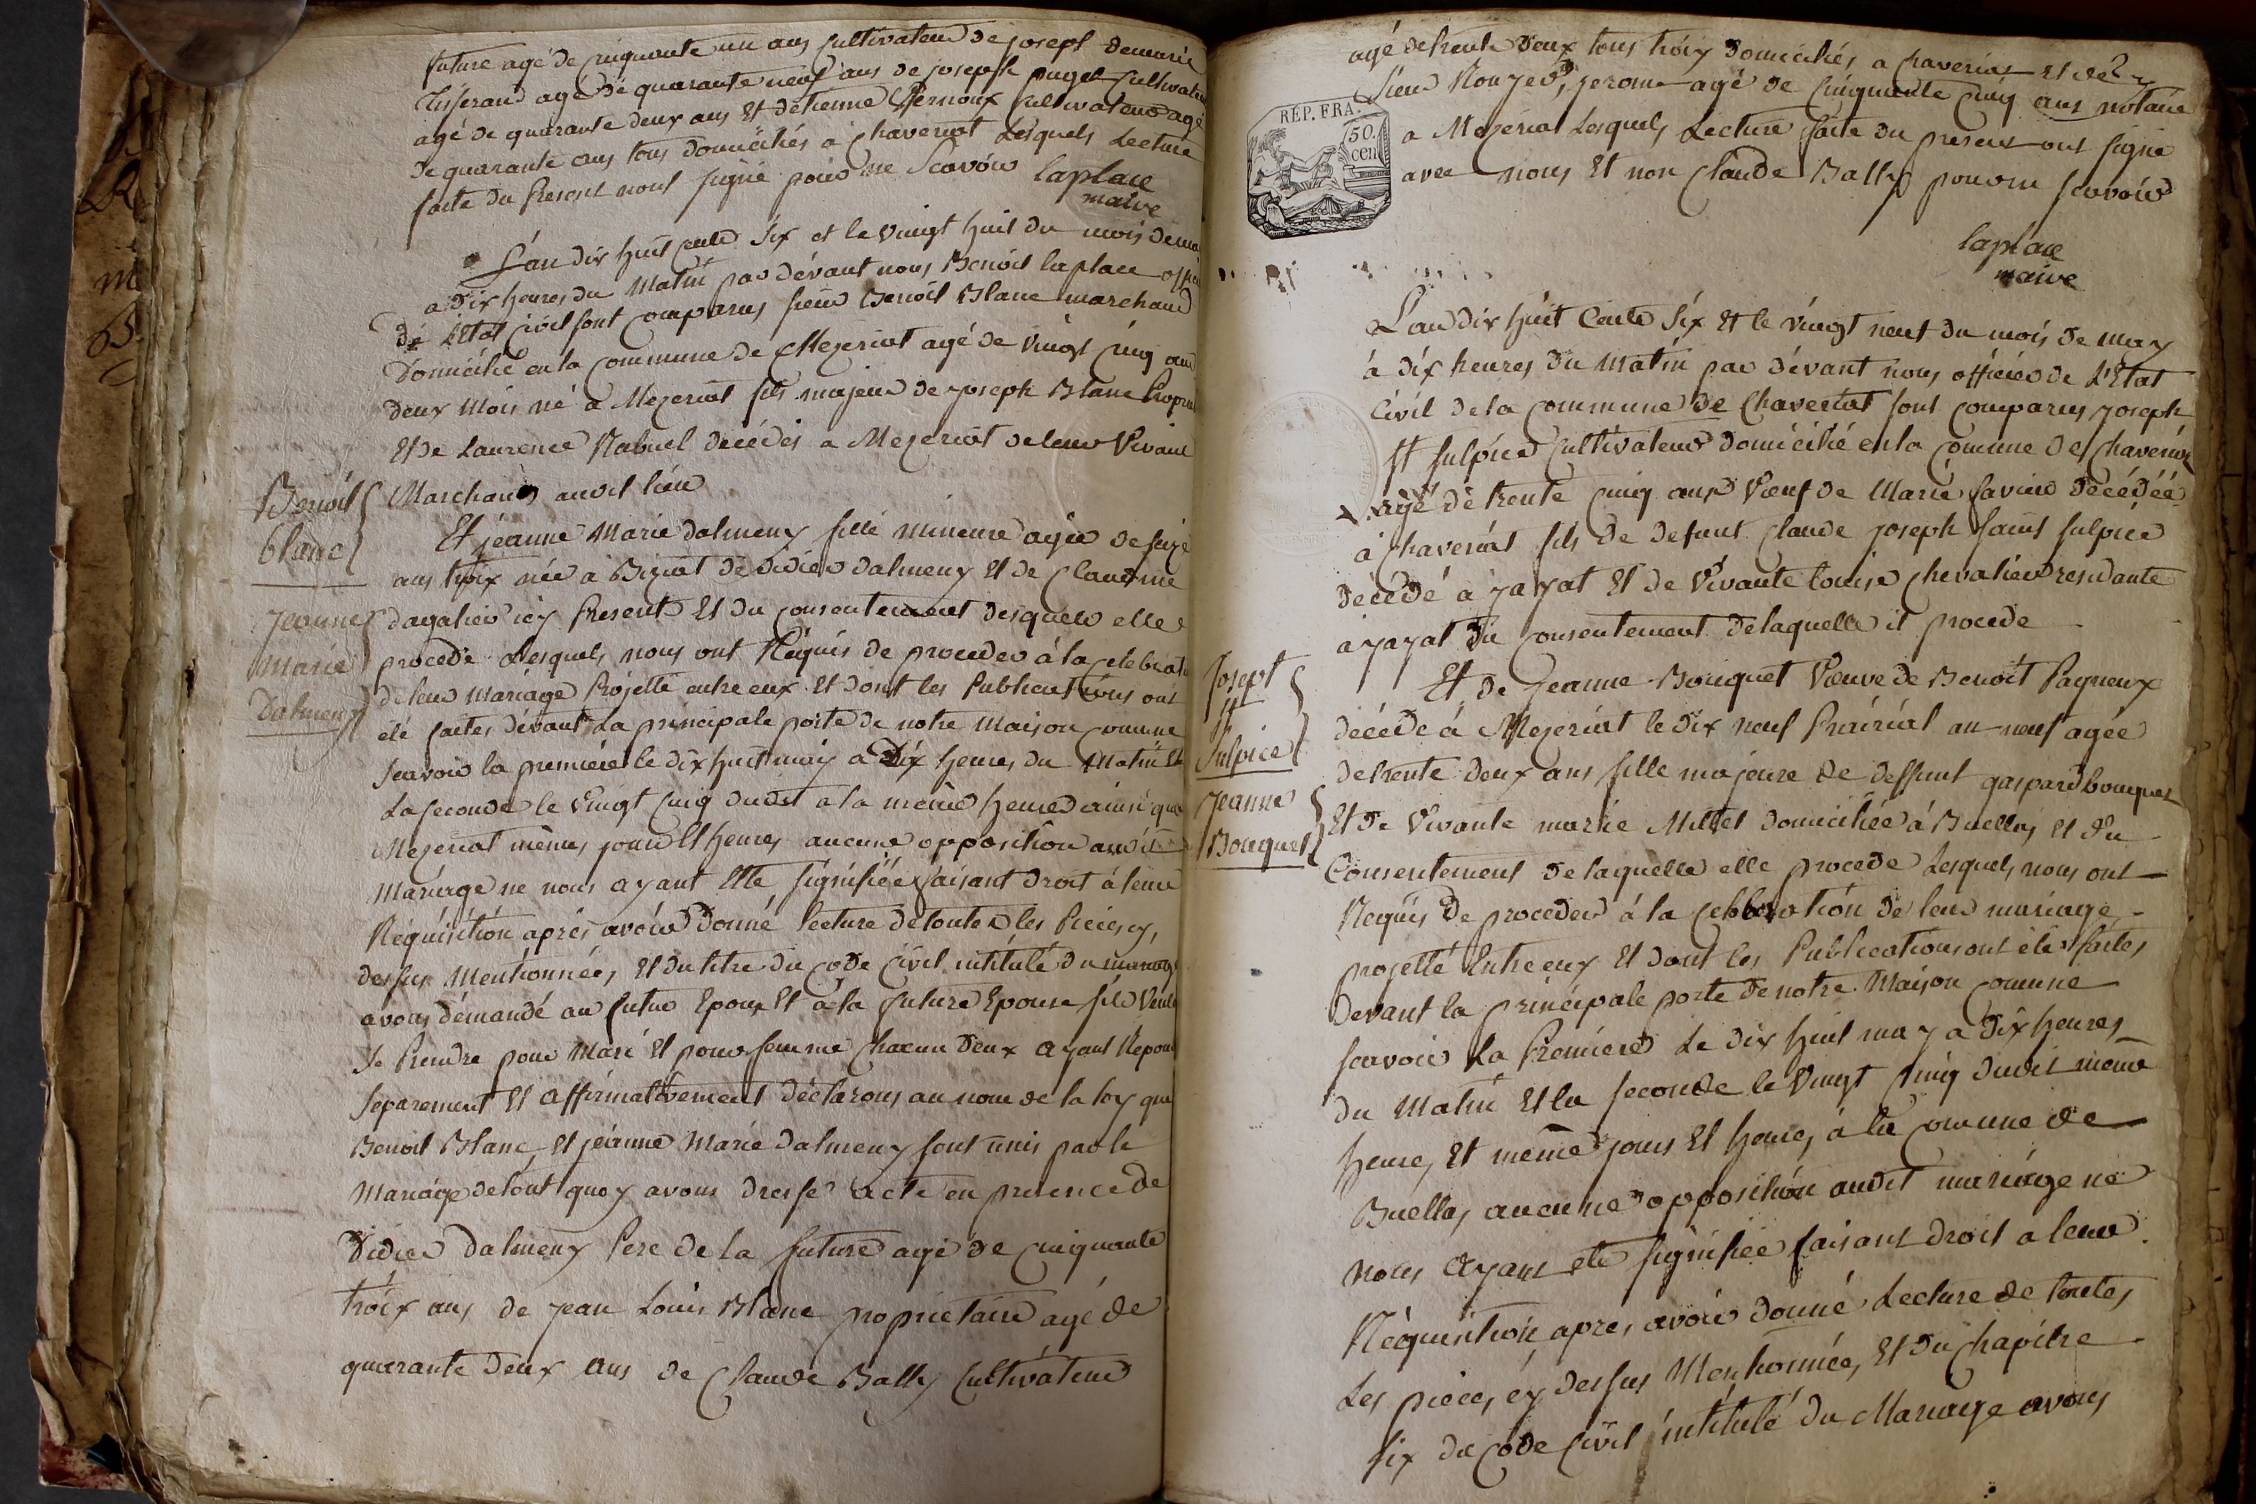 future agé de cinquante un ans cultivateur de joseph demarie
tisserand agé de quarante neuf ans de joseph puget cultivateur
agé de quarante deux ans Et detienne Pernoux cultivateur agé
de quarante ans tous domiciliés a Chaveriat Lesquels Lecture
faite du Present nont signé pour ne Scavoir laplace
maire
L'an dix huit cents Six et le vingt huit du mois de may
a dix heures du matin par dévant nous Benoit laplace offi
de L'Etat civil sont comparus sieur Benoit Blanc marchand
Domicilié en la commune de Mezeriat agé de vingt cinq ans
deux mois né a Mezeriat fils majeur de joseph Blanc Propri
Et de Laurence Nabuel decédés a Mezeriat de leur Vivant
Marchands audit lieu
Benoit
blanc
Et jeanne Marie dalmeny fille mineure agée de seize
ans troix née a Biziat de didier dalmeny Et de Claudine
jeanne
marie
Dalmeny
dagalier icy Present Et du consentement desquels elle
procede Lesquels nous ont Réquis de proceder á la celebration
de leur mariage Projetté entre eux Et dont les Publications ont
été faites dévant La principale porte de notre maison comune
scavoir la premiere le dix huit may a Dix heures du matin Et
La seconde le Vingt cinq dudit a la même heure ainsi qua
Mezeriat mêmes jours Et heures aucune opposition audit
mariage ne nous ayant Eté signifiée faisant droit á leur
Réquisition aprés avoir Donné lecture de toutes les Pieces cy
dessus Mentionnées Et du titre du Code Civil intitulé du mariage
avons démandé au futur Epoux Et á la future Epouse s'ils Veulent
Se Prendre pour Mari Et pour femme Chacun Deux ayant Répondu
Séparement Et affirmativement déclarons au nom de la loy que
Benoit Blanc Et jeanne Marie dalmeny sont unis par le
Mariage de tout quoy avons dressé acte en presence de
Didier dalmeny Pere de la future agé de cinquante
tróix ans de jean Louis Blanc proprietaire agé de
quarante deux ans de Claude Bally Cultivateur
agé de trente deux tous tróix domiciliés a chaveriat Et de
Sieur jerome agé de cinquante cinq ans notaire
REP. FRA.
50.
cen
a Mezeriat Lesquels Lecture faite du present ont signé
avec nous Et non Claude Bally pour ne scavoir
laplace
maire
L'an dix huit Cents Six Et le vingt neuf du mois de may
á dix heures du matin par dévant nous officier de L'Etat
Civil de la commune de Chaveriat sont comparus joseph
St sulpice cultivateur domicilié en la comune de Chaveriat
agé de trente cinq ans Veuf de Marie favier decédée
a Chaveriat fils de defunt Claude joseph saint sulpice
décédé a jayat Et de Vivante Louise Chevalier residante
a jayat du consentement de laquelle il procede
josept
st
sulpice
Et de jeanne Bouquet Veuve de Benoit Pagneux
décédé á Mezeriat le dix neuf Prairial an neuf agée
de trente deux ans fille majeure de deffunt gaspard bouquet
jeanne
Bouquet
Et de Vivante marie Millet domiciliée á Buellas Et du
Consentement de laquelle elle procede Lesquels nous ont
Requis de proceder á la celebration de leur mariage
projetté Entre eux Et dont les Publications ont été faites
devant la principale porte de notre Maison comune
scavoir La Premiere Le dix huit may a dix heures
du Matin Et la seconde le Vingt cinq dudit même
heure, Et même jours Et heures á la Comune de
Buellas aucune opposition audit mariage ne
nous ayant eté signifiée faisant droit a leur
Réquisition apres avoir donné Lecture de toutes
Les pieces cy dessus Mentionnées Et du Chapitre
six du Code Civil intitulé du Mariage avons